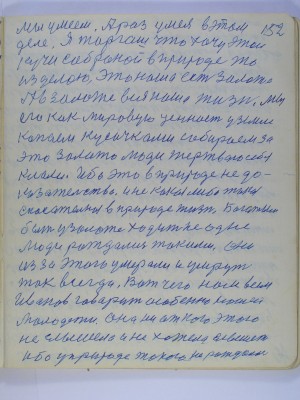 мы умеем. А раз умея в этом 152
деле, Я таргаш что хочу этой
кучи собраной в природе то
и зделаю. Это наша есть Золото
А в Золоте вся наша жизнь, мы
его как мировую ценность у земле
копаем кусачками собираем за
это Золото люди жертвою себя
клали. Ибо это в природе не до-
казательство, и не какая либо така
спасательная в природе жизнь. Богатыми
быть у золоте ходить не одне
люди рождались такими. они
из за этого умерали и умрут
так всегда. Вот чего нам всем
Иванов говорит особенно нашей
молодежи. Она ни от кого этого
не слышела и не хотела слышать
ибо у природе такого не рождали